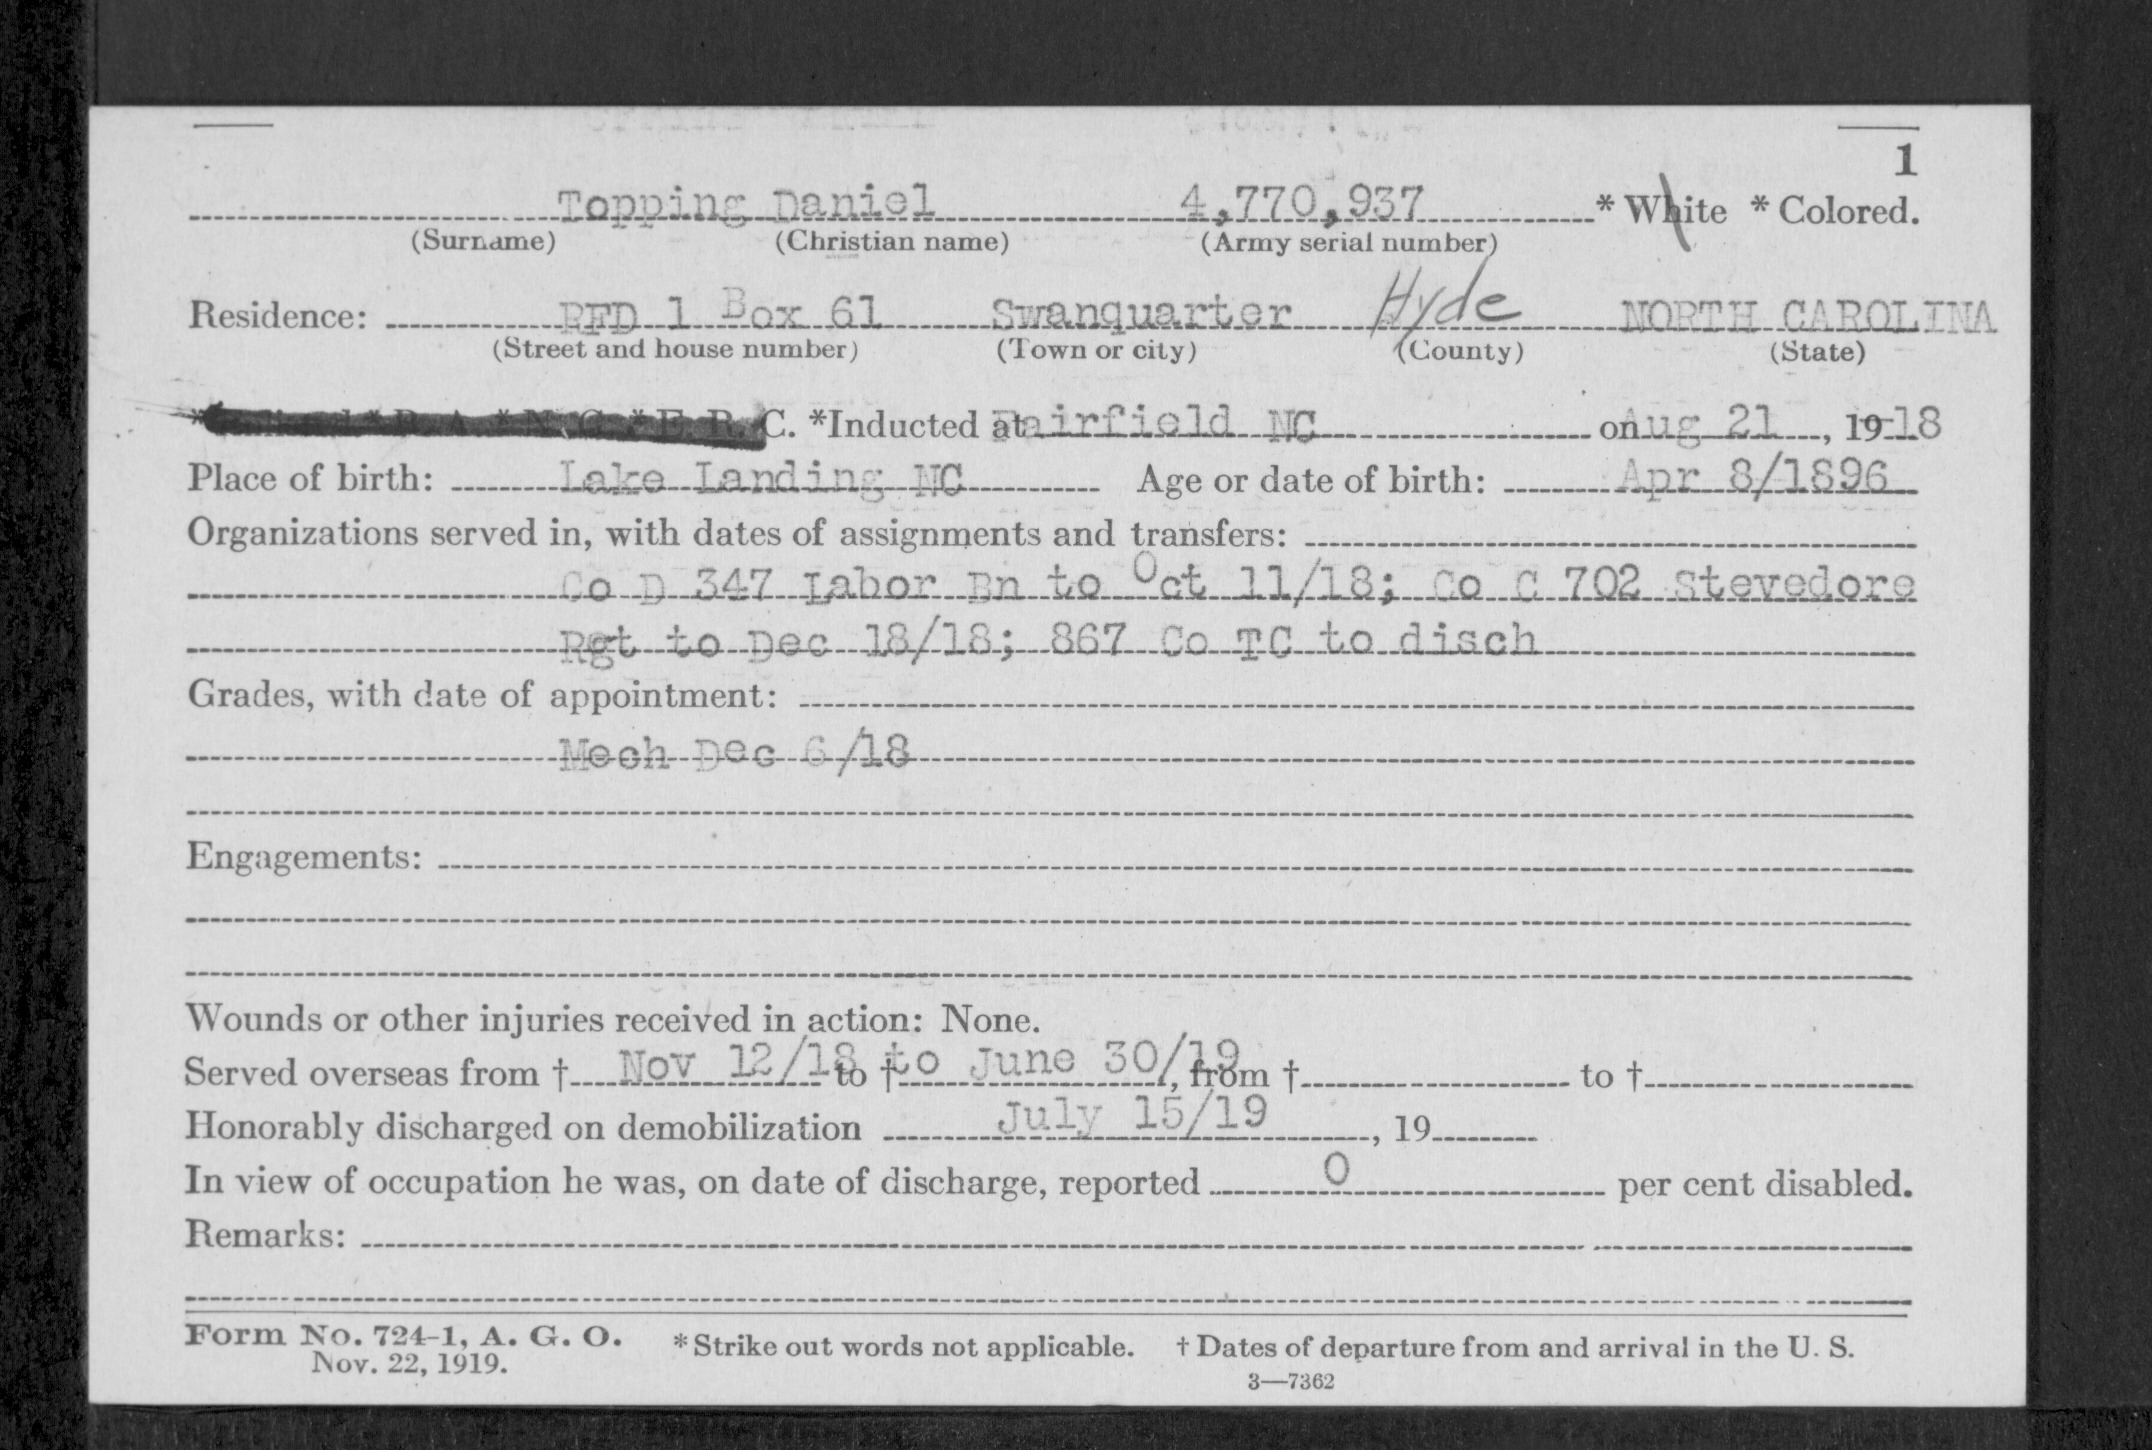 1
Topping Daniel 4,770,937 * White * Colored.
(Surname) (Christian name) (Army serial number)
Residence: RFD 1 Box 61 Swanquarter Hyde NORTH CAROLINA
(Street and house number) (Town or city) (County) (State)
* R. A. * N. G. * E. R. C. *Inducted at Fairfield NC on Aug 21, 19 18
Place of birth: Lake Landing NC Age or date of birth: Apr 8/1896
Organizations served in, with dates of assignments and transfers:
Co D 347 Labor Bn to Oct 11/18; Co C 702 Stevedore
Rgt to Dec 18/18; 867 Co TC to disch
Grades, with date of appointment:
Mech Dec 6/18
Engagements:
Wounds or other injuries received in action: None.
Served overseas from † Nov 12/18 to † to June 30/19, from † to †
Honorably discharged on demobilization July 15/19, 19
In view of occupation he was, on date of discharge, reported 0 per cent disabled.
Remarks:
Form No. 724-1, A. G. O. * Strike out words not applicable. † Dates of departure from and arrival in the U. S.
Nov. 22, 1919. 3—7362